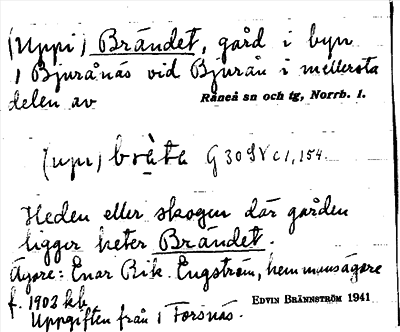 (Uppi) Brändet, gård i byn
1 Bjurånäs vid Bjurån i mellersta
delen av Råneå sn och tg, Norrb. l.
(upi) bràta G 30 IV c 1, 154.
Heden eller skogen där gården
ligger heter Brändet.
Ägare: Enar Rik. Engström, hemmansägare
f. 1902 kb EDVIN BRÄNNSTRÖM 1941
Uppgiften från 1 Forsnäs.